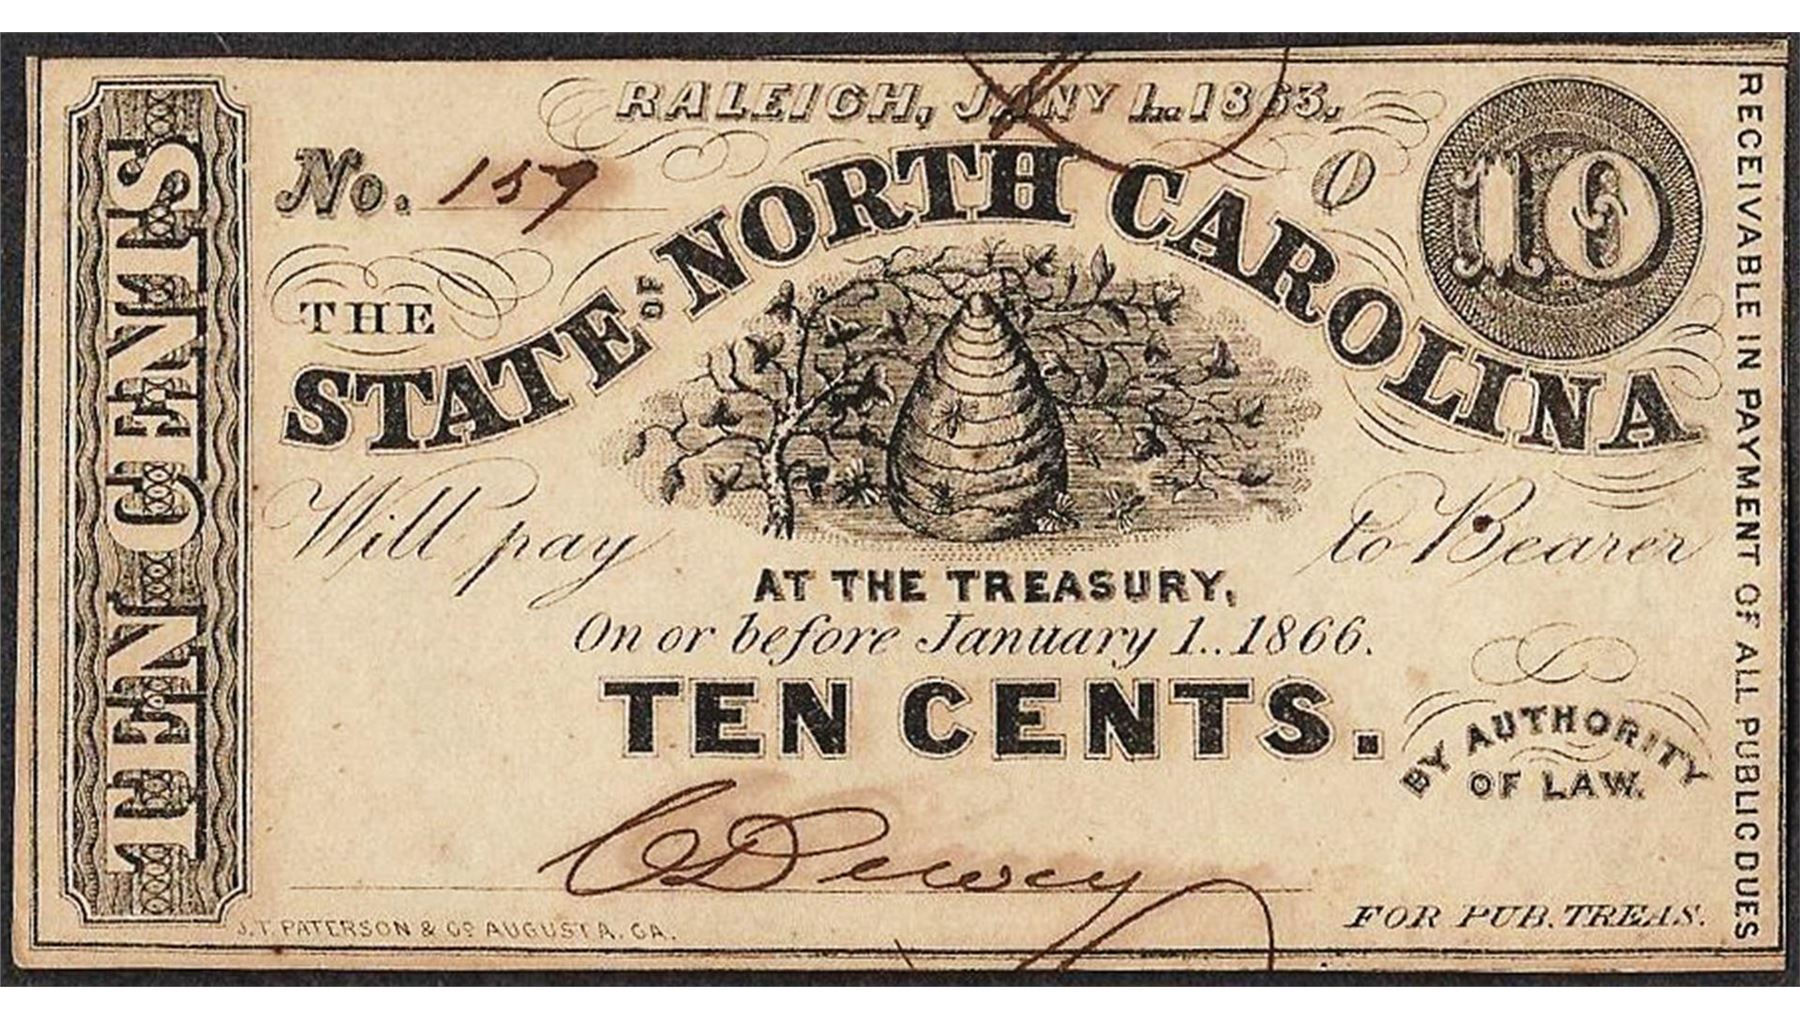 RALEIGH, JANY 1st 1863.
No. 157
10
THE
STATE OF NORTH CAROLINA
Will pay to Bearer
AT THE TREASURY,
On or before January 1.. 1866.
TEN CENTS.
BY AUTHORITY
OF LAW.
C Dewey
FOR PUB. TREAS.
J.T. PATERSON & Co AUGUSTA. GA.
TEN CENTS
RECEIVABLE IN PAYMENT OF ALL PUBLIC DUES